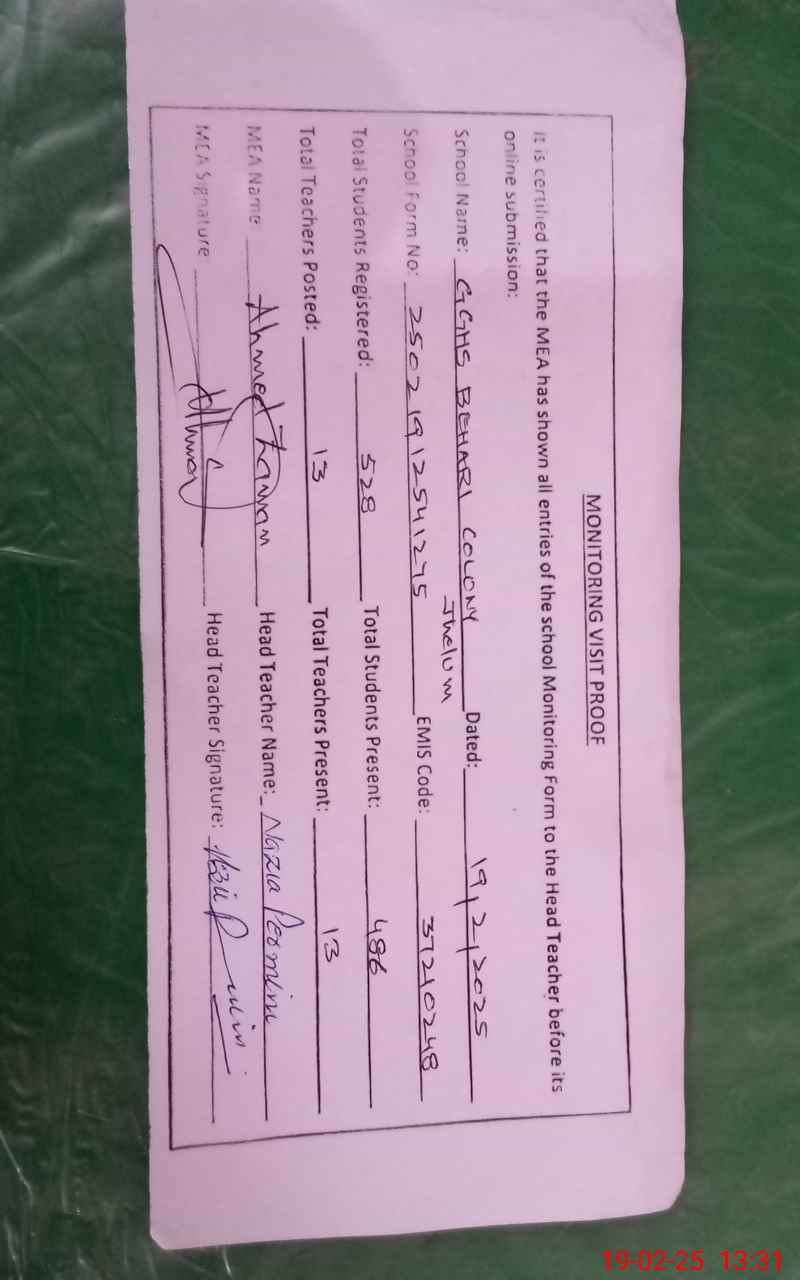 MONITORING VISIT PROOF
It is certified that the MEA has shown all entries of the school Monitoring Form to the Head Teacher before its
online submission:
School Name: GGHS BEHARI COLONY Jhelum Dated: 19/2/2025
School Form No: 25021912541275 EMIS Code: 37210248
Total Students Registered: 528 Total Students Present: 486
Total Teachers Posted: 13 Total Teachers Present: 13
MEA Name: Ahmed Zaman Head Teacher Name: Nazia
MEA Signature Head Teacher Signature:
19-02-25 13:31